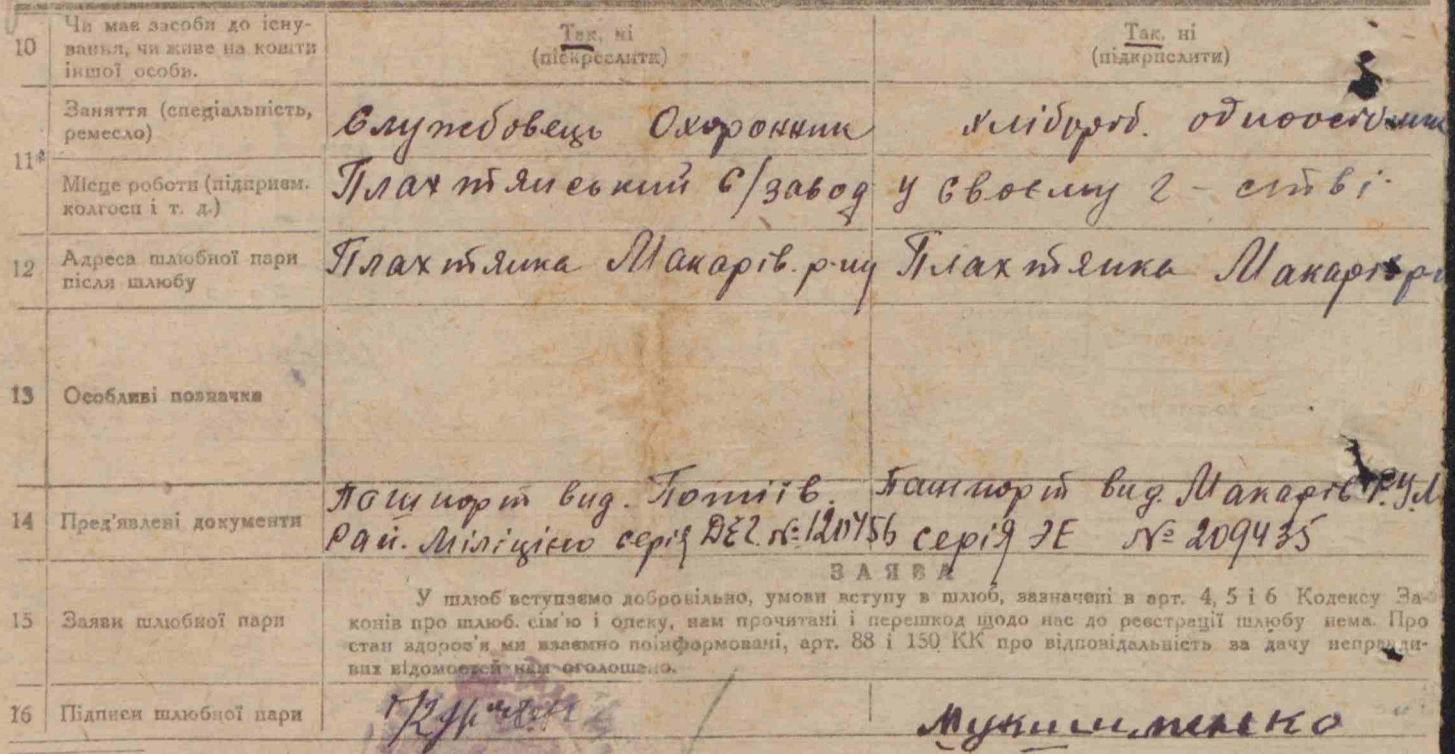 10 Чи має засоби до існу-
вання, чи живе на кошти
іншої особи.
Так, ні
(піскреслити)
Так, ні
(підкрислити)
11
Заняття (спеціальність,
ремесло)
Службовець Охоронник
хлібороб. одноосібник
Місце роботи (підприєм.
колгосп і т. д.)
Плахтянський С/завод
У своєму г-стві
12 Адреса шлюбної пари
після шлюбу
Плахтянка Макарів. р-ну
Плахтянка Макарів
13 Особливі позначки
14 Пред'явлені документи
Пашпорт вид. Потіїв.
Рай. Міліцією серія №
Пашпорт вид. Макарів Р.У.М
серія ЭЕ № 209435
ЗАЯВА
15 Заяви шлюбної пари
У шлюб вступаємо добровільно, умови вступу в шлюб, зазначені в арт. 4, 5 і 6 Кодексу За-
конів про шлюб. сім'ю і опеку, нам прочитані і перешкод щодо нас до реєстрації шлюбу нема. Про
стан здоров'я ми взаємно поінформовані, арт. 88 і 150 КК про відповідальність за дачу неправди-
вих відомостей нам оголошено.
16 Підписи шлюбної пари